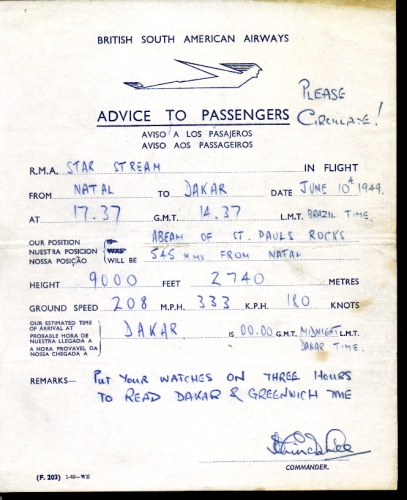 BRITISH SOUTH AMERICAN AIRWAYS
PLEASE
CIRCULATE!
ADVICE TO PASSENGERS
AVISO A LOS PASAJEROS
AVISO AOS PASSAGEIROS
R.M.A. STAR STREAM IN FLIGHT
FROM NATAL TO DAKAR DATE JUNE 10th 1949.
AT 17.37 G.M.T. 14.37 L.M.T. BRAZIL TIME.
OUR POSITION IS ABEAM OF ST. PAULS ROCKS
NUESTRA POSICION WAS
NOSSA POSIÇÃO WILL BE 545 NMS FROM NATAL
HEIGHT 9000 FEET 2740 METRES
GROUND SPEED 208 M.P.H. 333 K.P.H. 180 KNOTS
OUR ESTIMATED TIME
OF ARRIVAL AT DAKAR IS 00.00 G.M.T. MIDNIGHT L.M.T.
PROBABLE HORA DE
NUESTRA LLEGADA A DAKAR TIME.
A HORA PROVAVEL DA
NOSSA CHEGADA A
REMARKS— PUT YOUR WATCHES ON THREE HOURS
TO READ DAKAR & GREENWICH TIME
COMMANDER.
(F. 203) 1-48—WS